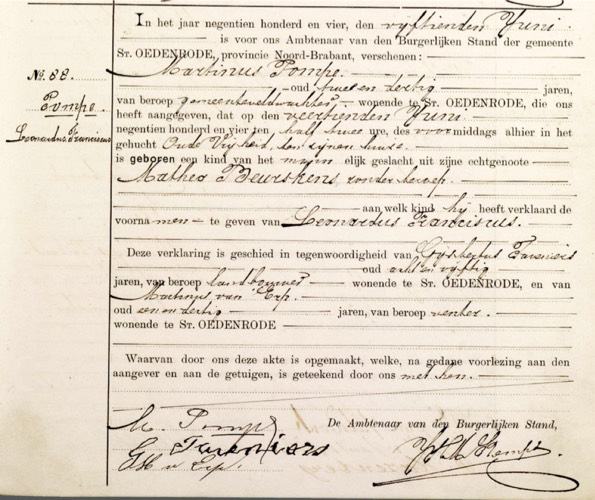 In het jaar negentien honderd en vier, den vijftienden Juni
is voor ons Ambtenaar van den Burgerlijken Stand der gemeente
St. OEDENRODE, provincie Noord-Brabant, verschenen:
Martinus Pompe
oud twee en dertig jaren,
van beroep gemeenteveldwachter wonende te St. OEDENRODE, die ons
heeft aangegeven, dat op den veertienden Juni
negentien honderd en vier ten half twee ure, des voormiddags alhier in het
gehucht Oude Vrijheid, ten zijnen huize
is geboren een kind van het mannelijk geslacht uit zijne echtgenoote
Mathea Beurskens, zonder beroep.
aan welk kind hij heeft verklaard de
voornamen te geven van Leonardus Franciscus.
Deze verklaring is geschied in tegenwoordigheid van Gijsbertus Faveniers
oud acht en vijftig
jaren, van beroep landbouwer wonende te St. OEDENRODE, en van
Martinus van Erp.
oud een en dertig jaren, van beroep
wonende te St. OEDENRODE
Waarvan door ons deze akte is opgemaakt, welke, na gedane voorlezing aan den
aangever en aan de getuigen, is geteekend door ons met hen.
No. 88.
Pompe
Leonardus Franciscus
M. Pompe
De Ambtenaar van den Burgerlijken Stand,
v Erp.